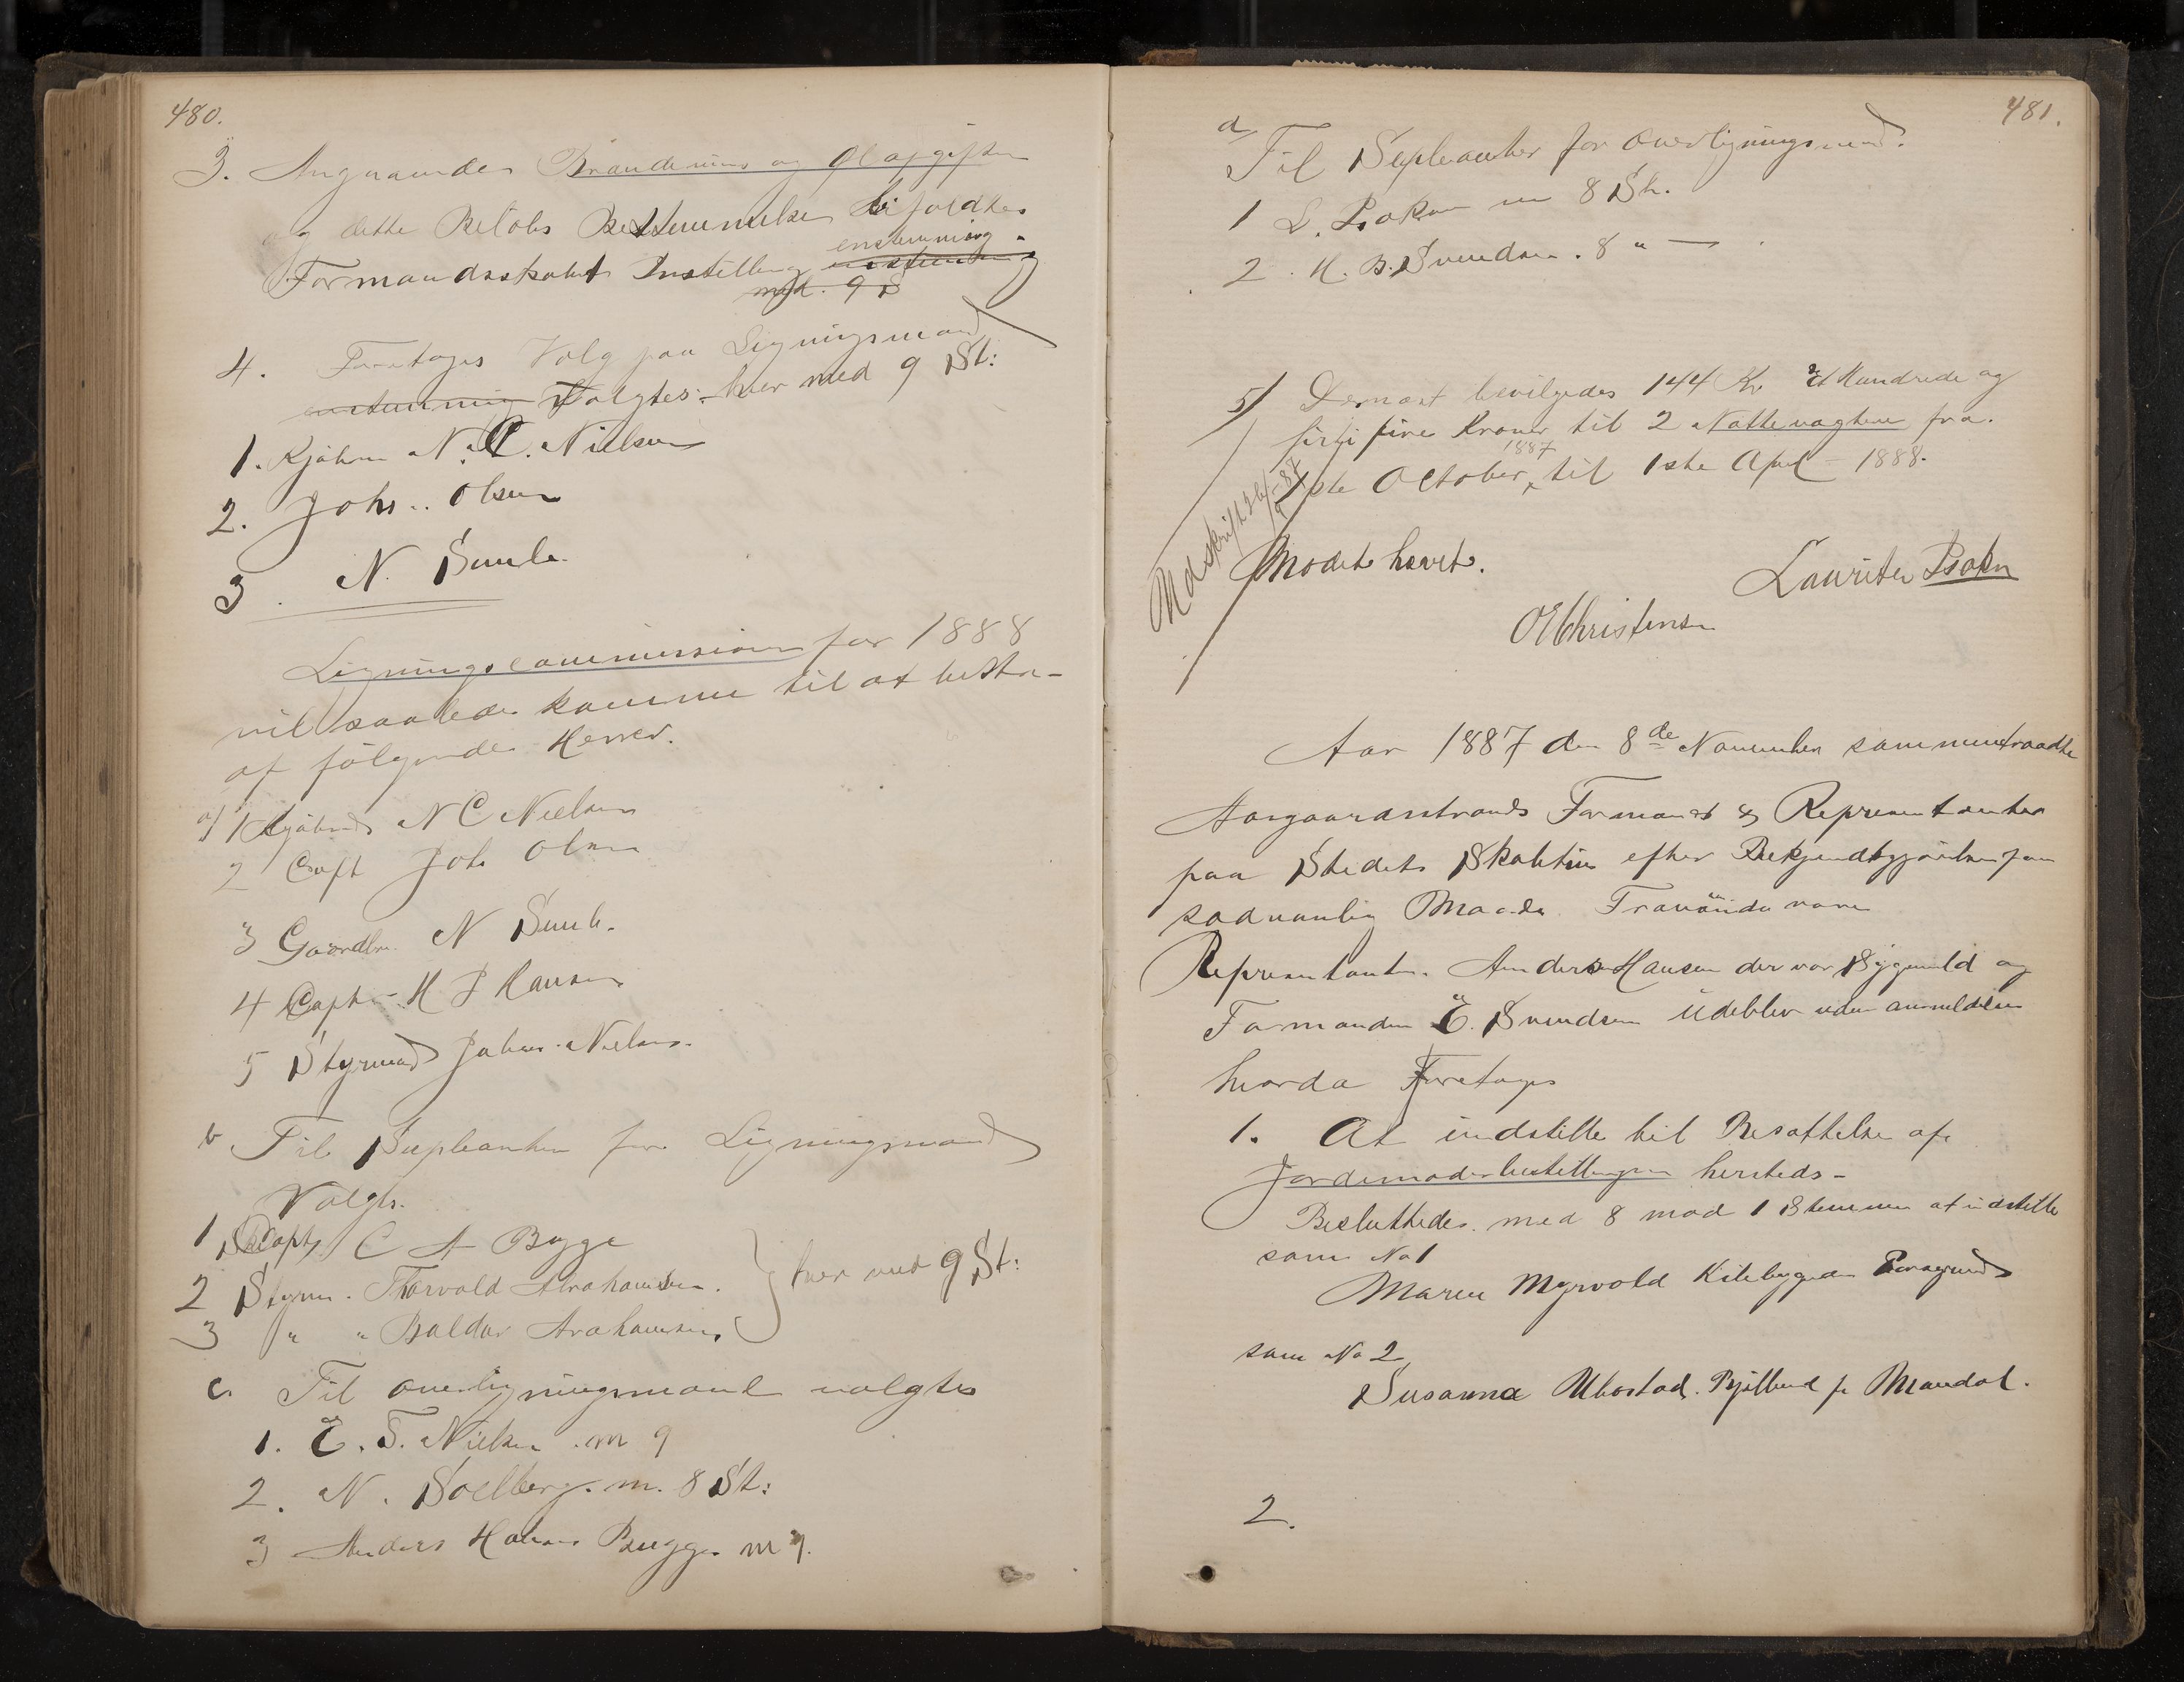 480.
3. Angaaende Brændevins og Ølafgiften
og dette Beløbs Bestemmelse bifaldtes
Formandsskabets Instelling enstemmig
med 9 S
4. Foretoges Valg paa Ligningsmænd
enstemmig Valgtes hver med 9 St:
1. Kjøbm N. C. Nielsen
2. Johs. Olsen
3. N. Semb.
Ligningscommissionen for 1888
vil saaledes komme til at bestaa
af følgende Herrer.
a/ 1 Kjøbmd N C Nielsen
2 Capt Johs Olsen
3 Gaardbr. N Semb.
4 Capt. H J Hansen
5 Styrmand Johan Nielsen.
b Til Supleanter for Ligningsmænd
Valgts.
1 Capt C A Bygge
2 Styrm. Thorvald Abrahamsen. } hver med 9 St:
3 " " Baldar Arahamsen
c. Til overligningsmænd valgtes
1. E. S. Nielsen . m 9
2. N. Soelberg. m. 8 St:
3 Anders Hansen Bugge m 9.
481.
d, Til Supleanter for Overligningsmænd.
1 L. Bakn m 8 St.
2. H. B. Svendsen. 8 " —
5/ Dernæst bevilgedes 144 Kr Et Hundrede og
firti fire Kroner til 2 Nattevagtere fra
1ste October 1887 til 1ste April 1888.
Udskrift 26/9-87
Mødet hævet.
Lauritz Bakn
O Christensen
Aar 1887 den 8de November sammentraadte
Aasgaardsstrands Formænd & Representanter
paa Stedets Skolestue efter Bekjendtgjørelse paa
sædvanlig Maade. Fraværende vare
Representant. Anders Hansen der var Sygmeld og
Formanden E. Svendsen Udeblev uden anmeldelse
hvorda Foretoges
1. At indstille til Besættelse af
Jordemoderbestillingen hersteds -
Besluttedes med 8 mod 1 Stemme at indstille
som No 1
Maren Myrvold Kilebygden Porsgrund
som No 2
Susanna Ubostad. Bjelland pr Mandal.
2.